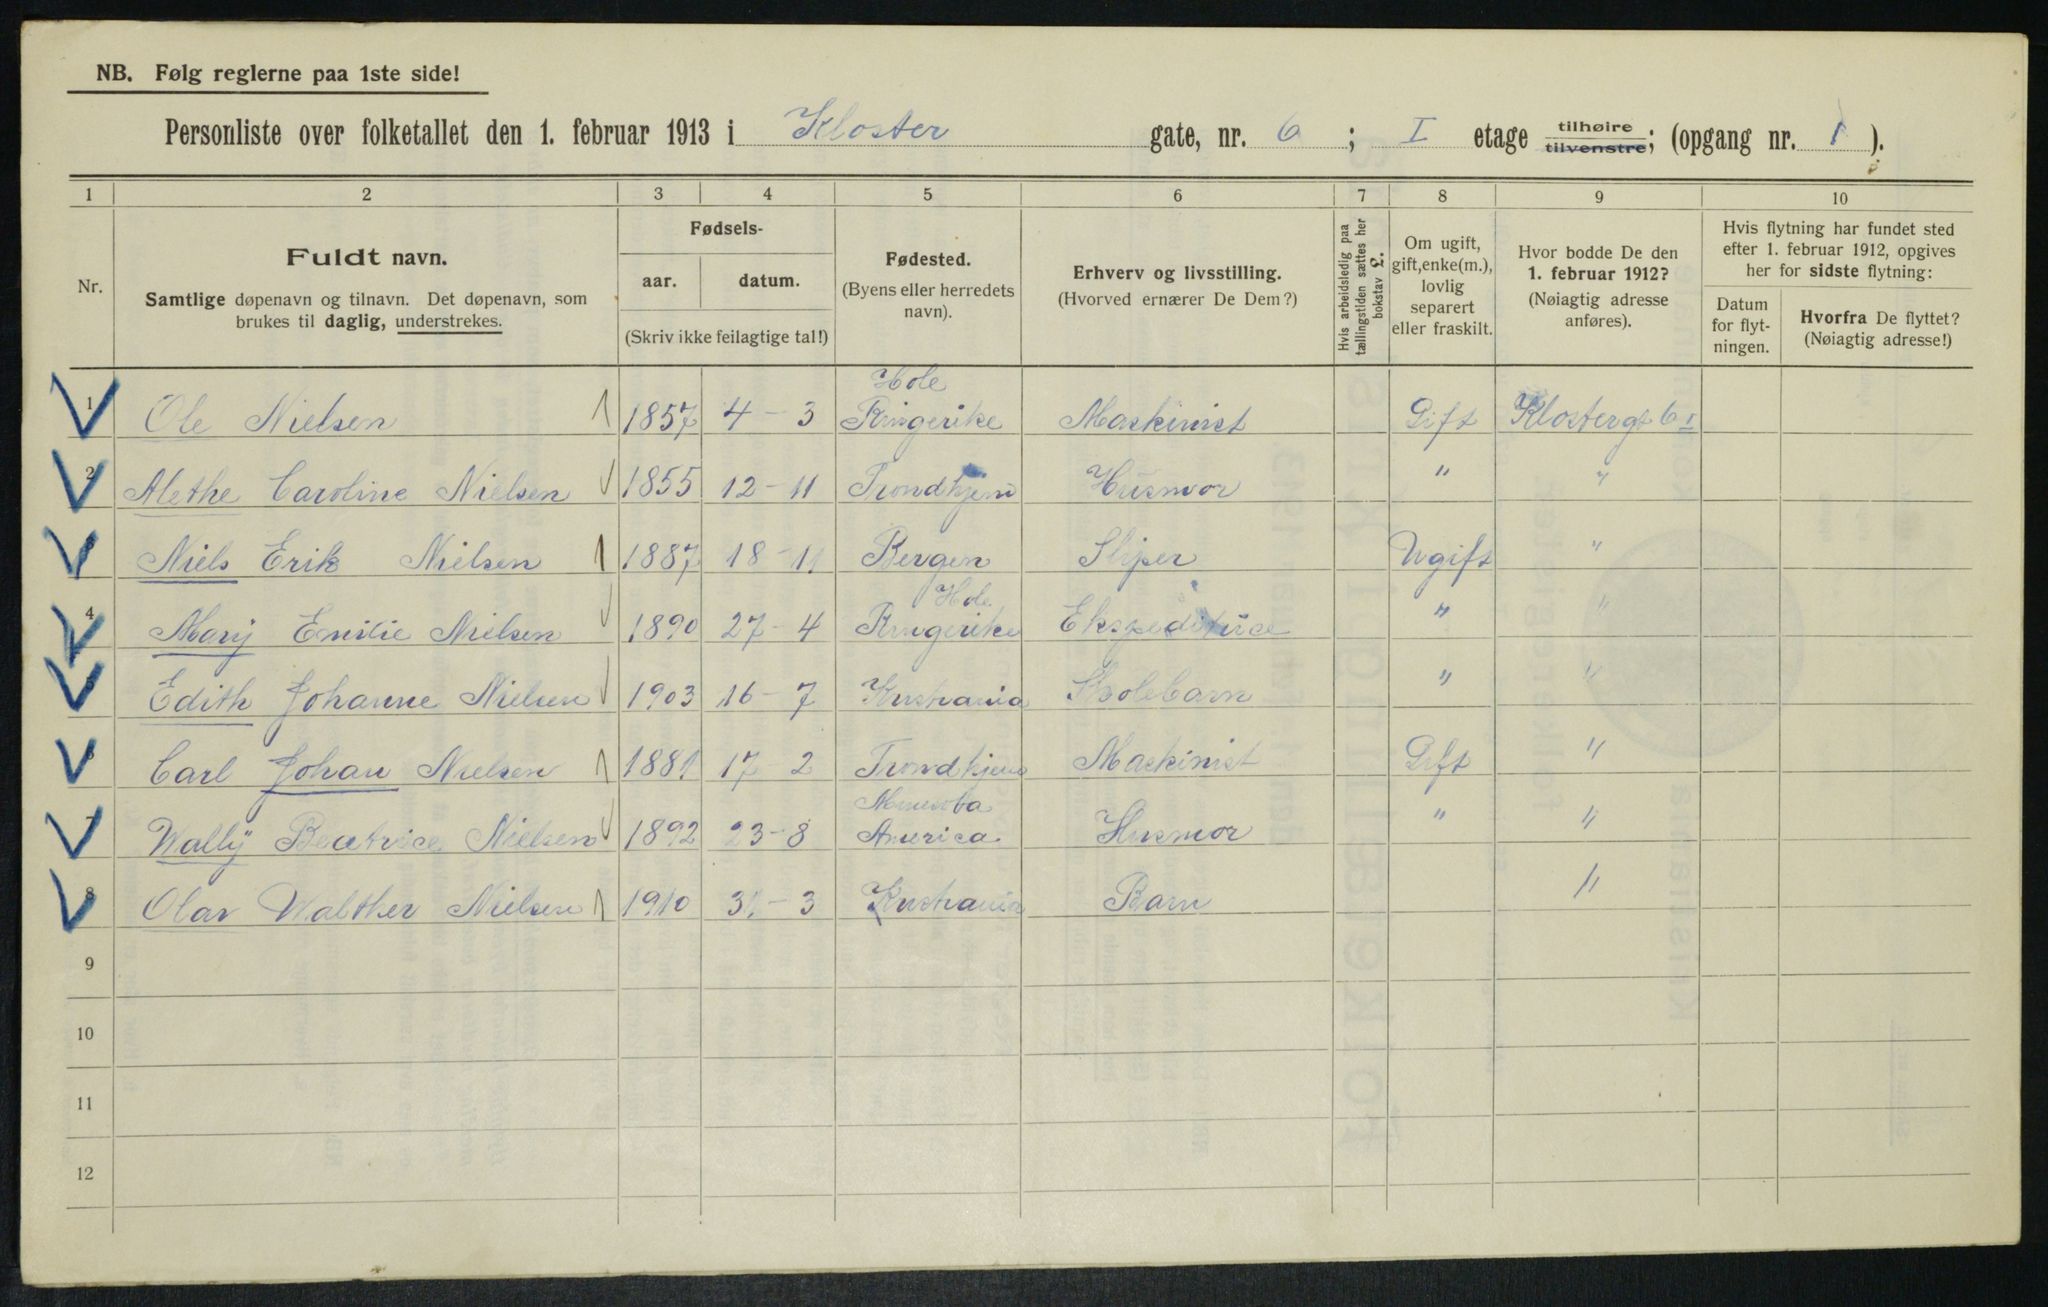 NB. Følg reglerne paa 1ste side!
Personliste over folketallet den 1. februar 1913 i Kloster gate, nr. 6 ; I etage tilhøire tilvenstre; (opgang nr. 1 ).
1 2 3 4 5 6 7 8 9 10
Nr.
Fuldt navn.
Samtlige døpenavn og tilnavn. Det døpenavn, som
brukes til daglig, understrekes.
Fødsels-
aar. datum.
(Skriv ikke feilagtige tal!)
Fødested.
(Byens eller herredets
navn).
Erhverv og livsstilling.
(Hvorved ernærer De Dem?)
Hvis arbeidsledig paa
tællingstiden sættes her
bokstav L.
Om ugift,
gift, enke(m.),
lovlig
separert
eller fraskilt.
Hvor bodde De den
1. februar 1912?
(Nøiagtig adresse
anføres).
Hvis flytning har fundet sted
efter 1. februar 1912, opgives
her for sidste flytning:
Datum
for flyt-
ningen.
Hvorfra De flyttet?
(Nøiagtig adresse!)
1 Ole Nielsen 1857 4 - 3 Hole Ringerike Maskinist Gift Klostergt 6 I
2 Alethe Caroline Nielsen 1855 12 - 11 Trondhjem Husmor " "
3 Niels Erik Nielsen 1887 18 - 11 Bergen Sliper Ugift "
4 Mary Emilie Nielsen 1890 27 - 4 Hole Ringerike Ekspeditrice " "
5 Edith Johanne Nielsen 1903 16 - 7 Kristiania Skolebarn " "
6 Carl Johan Nielsen 1881 17 - 2 Trondhjem Maskinist Gift "
7 Wally Beatrice Nielsen 1892 23 - 8 America Husmor " "
8 Olav Walther Nielsen 1910 31 - 3 Kristiania Barn "
9
10
11
12